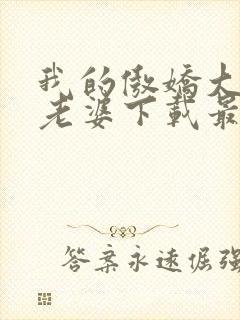 我的傲娇大
老婆下载最
答案永远倔强